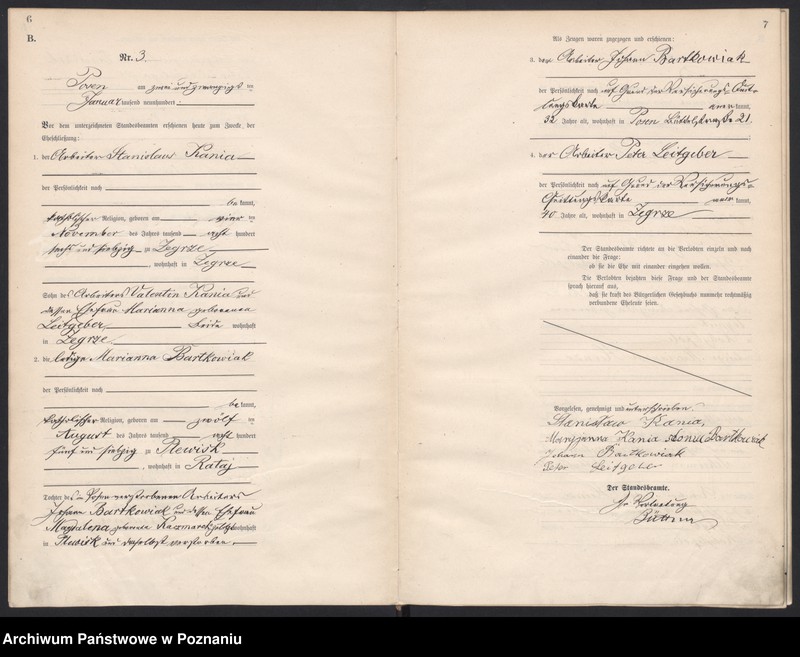 6
B.
Nr. 3.
Posen am zwei und zwanzigsten
Januar tausend neunhundert
Vor dem unterzeichneten Standesbeamten erschienen heute zum Zwecke der
Eheschließung:
1. der Arbeiter Stanislaus Kania
der Persönlichkeit nach
be kannt,
katholischer Religion, geboren am vier ten
November des Jahres tausend acht hundert
sechs und siebzig zu Zegrze
, wohnhaft in Zegrze
Sohn des Arbeiters Valentin Kania und
dessen Ehefrau Marianna geborenen
Leitgeber beide wohnhaft
in Zegrze
2. die ledige Marianna Bartkowiak
der Persönlichkeit nach
be kannt,
katholischer Religion, geboren am zwölf ten
August des Jahres tausend acht hundert
fünf und siebzig zu Plewisk
, wohnhaft in Rataj
Tochter des in Posen verstorbenen Arbeiters
Johann Bartkowiak und dessen Ehefrau
Magdalena geborene wohnhaft
in und daselbst verstorben
7
Als Zeugen waren zugezogen und erschienen:
3. der Arbeiter Johann Bartkowiak
der Persönlichkeit nach auf Grund der Versicherungs-Quit-
tungskarte aner kannt,
32 Jahre alt, wohnhaft in Posen 21.
4. der Arbeiter Peter Leitgeber
der Persönlichkeit nach auf Grund der Versicherungs-
Quittungskarte aner kannt,
40 Jahre alt, wohnhaft in Zegrze
Der Standesbeamte richtete an die Verlobten einzeln und nach
einander die Frage:
ob sie die Ehe mit einander eingehen wollen.
Die Verlobten bejahten diese Frage und der Standesbeamte
sprach hierauf aus,
daß sie kraft des Bürgerlichen Gesetzbuchs nunmehr rechtmäßig
verbundene Eheleute seien.
Vorgelesen, genehmigt und unterschrieben
Stanisław Kania,
Maryanna Kania z domu Bartkowiak
Johann Bartkowiak
Peter Leitgeber
Der Standesbeamte.
In Vertretung
Archiwum Państwowe w Poznaniu